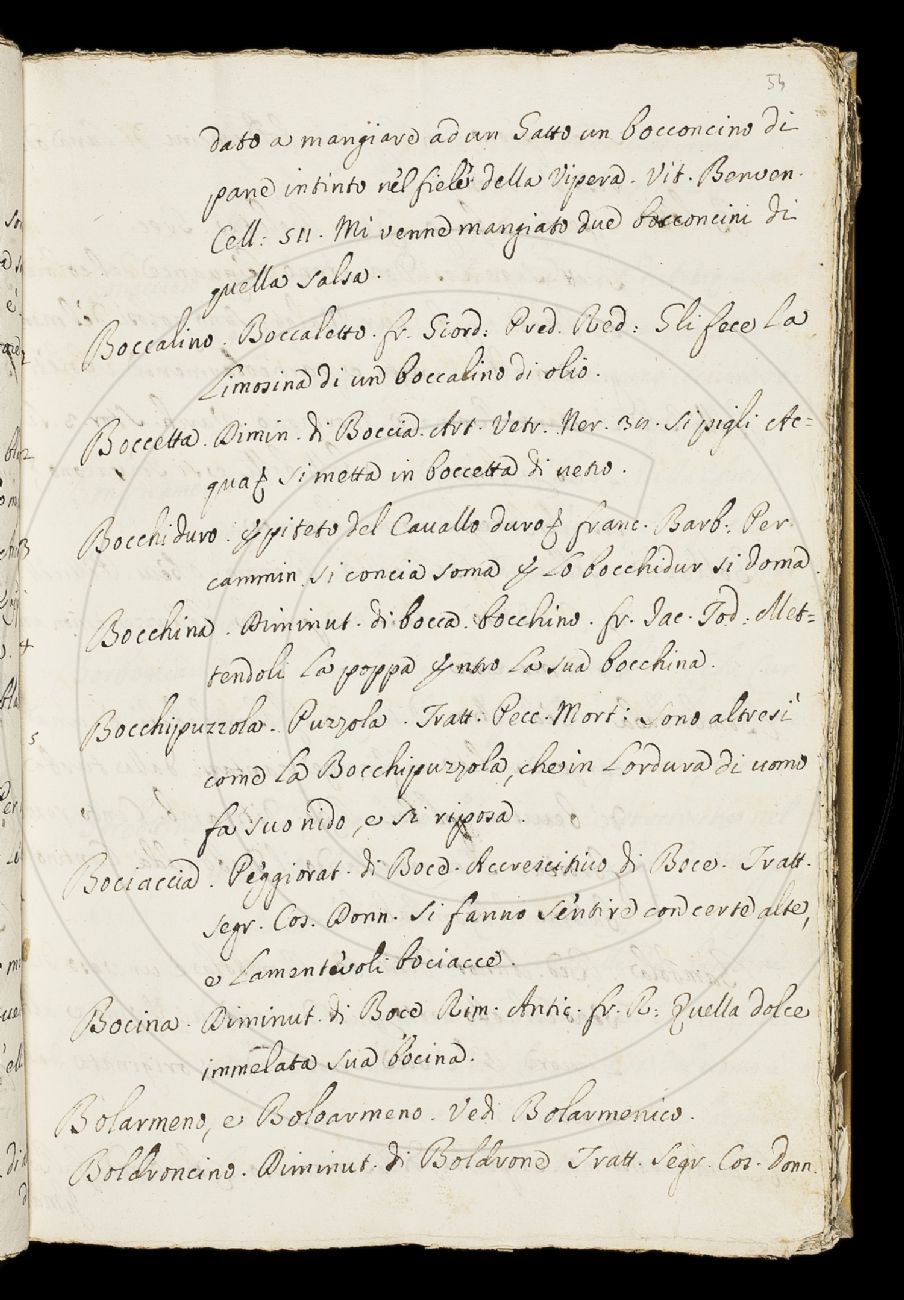 54
dato a mangiare ad un Gatto un bocconcino di
pane intinto nel fiele della Vipera. Vit. Benven.
Cell: 511. Mi venne mangiato due bocconcini di
quella salsa.
Boccalino. Boccaletto. fr. Giord: Pred. Red: Gli fece La
Limosina di un boccalino di olio.
Boccetta. Dimin. di Boccia. Art. Vetr. Ner. si pigli Ac=
qua si metta in boccetta di vetro.
Bocchiduro. piteto del Cavallo duro franc. Barb. Per
cammin si concia soma Lo bocchidur si doma
Bocchina. Diminut. di bocca. bocchino. fr. Iac. Tod: Met=
tendoli La poppa entro La sua bocchina.
Bocchipuzzola. Puzzola. Tratt. Pecc. Mort: sono altresì
come La Bocchipuzzola, che in Lordura di uomo
fa suo nido, e si riposa.
Bociaccia. Peggiorat. di Boce. Accrescitivo di Boce. Tratt.
segr. Cos. Donn. si fanno sentire con certe alte,
e Lamentevoli bociacce.
Bocina. Diminut. di Boce Rim. Antic. fr. R: Quella dolce
immelata sua bocina.
Bolarmeno, e Boloarmeno. Vedi Bolarmenico.
Boldroncino. Diminut. di Boldrone Tratt. Segr. Cos. Donn.